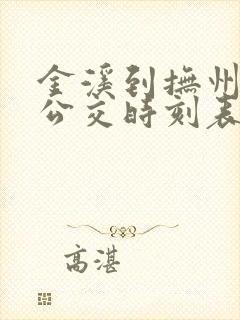 金溪到撫州
公交時刻表
高湛